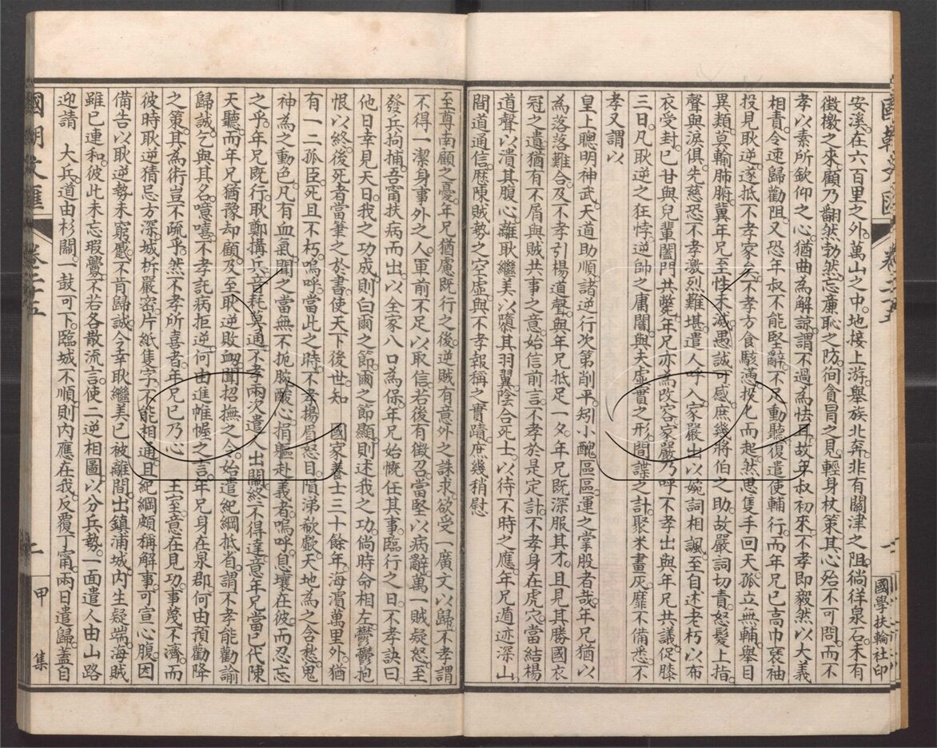 安溪在六百里之外萬山之中地接上游舉族北奔非有關津之阻徜徉泉石未有
徵檄之來顧乃翻然勃然忘廉恥之防徇貪冒之見輕身杖策其心殆不可問而不
孝以素所欽仰之心猶曲為解諒謂不過為怯耳故年叔初來不孝即毅然以大義
相責令速歸勸阻又恐年叔不能堅辭不足動聽復遣使輔行而年兄已高巾褒袖
投見耿逆遂抵不孝家矣不孝方食駭懣投匕而起然思隻手回天孤立無輔舉目
異類莫輸肺腑冀年兄至性未滅愚誠可感庶幾將伯之助故嚴詞切責怒髮上指
聲與淚俱先慈恐不孝激烈難堪遣人呼入家嚴出以婉詞相諷至自述老朽以布
衣受封已甘與兒輩闔門共斃年兄亦為改容家嚴乃呼不孝出與年兄共議促膝
三日凡耿逆之狂悖逆帥之庸闇與夫虛實之形間諜之計聚米畫灰靡不備悉不
孝又謂以
皇上聰明神武天道助順諸逆行次第削平矧小醜區區運之掌股者哉年兄猶以
為落落難合及不孝引楊道聲與年兄抵足一夕年兄既深服其才且見其勝國衣
冠之遺猶有不屑與賊共事之意始信前言不孝於是定計不孝身在虎穴當結楊
道聲以潰其腹心離耿繼美以隳其羽翼陰合死士以待不時之應年兄遁迹深山
間道通信歷陳賊勢之空虛與不孝報稱之實蹟庶幾稍慰
至尊南顧之憂年兄猶慮既行之後逆賊有意外之誅求欲受一廣文以歸不孝謂
不得一潔身事外之人軍前不足以取信若後有徵召當堅以病辭萬一賊疑怒至
發兵拘捕吾甯扶病而出以全家八口為保年兄始慨任其事臨行之日不孝訣曰
他日幸見天日我之功成則白爾之節爾之節顯則述我之功倘時命相左鬱鬱抱
恨以終後死者當筆之於書使天下後世知 國家養士三十餘年海濱萬里外猶
有一二孤臣死且不朽嗚呼當此之時不孝揚眉怒目隕涕欷歔天地為之含愁鬼
神為之動色凡有血氣聞之當無不扼腕酸心捐軀赴義者嗚呼息壤在彼而忍忘
之乎年兄既行耿鄭搆兵音耗莫通不孝兩次遣人出關終不得達意年兄當已代陳
天聽而年兄猶豫却顧及至耿逆敗衂聞招撫之令始遣紀綱抵省謂不孝能勸諭
歸誠乞與其名噫嘻不孝託病拒逆何由進帷幄之言年兄身在泉郡何由預勸降
之策其為術豈不疏乎然不孝所喜者年兄已乃心 王室意在見功事蔑不濟而
彼時耿逆猜忌方深城柝嚴密片紙隻字不能相通且紀綱頗稱解事可宣心腹因
備告以耿逆勢未窮蹙不肯歸誠今幸耿繼美已被離間出鎮浦城內生疑端海賊
雖已連和彼此未忘瑕釁不若各散流言使二逆相圖以分兵勢一面遣人由山路
迎請 大兵道由杉關一鼓可下臨城不順則內應在我反覆丁甯兩日遣歸蓋自
國朝文匯 卷二十五
甲集
國學扶輪社印